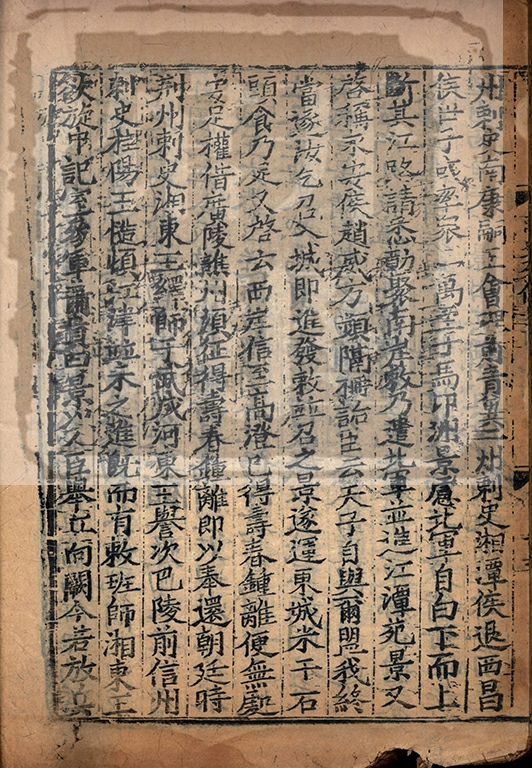 州刺史南康嗣王會理前青冀二州刺史湘潭侯退西昌
侯世子彧率衆三萬至于馬卬洲景慮北軍自白下而上
斷其江路請悉勒聚南岸敕乃遣北軍並進江潭苑景又
啓稱永安侯趙威方頻隔柵詬臣云天子自與爾盟我終
當逐汝乞召入城即進發敕並召之景遂運東城米于石
頭食乃足又啓云西岸信至高澄已得壽春鍾離便無處
安足權借廣陵譙州須征得壽春鍾離即以奉還朝廷時
荆州刺史湘東王繹師于武成河東王譽次巴陵前信州
刺史桂陽王慥頓江津並未之進既而有敕班師湘東王
欲旋中記室參軍蕭賁曰景以人臣舉兵向闕今若放兵